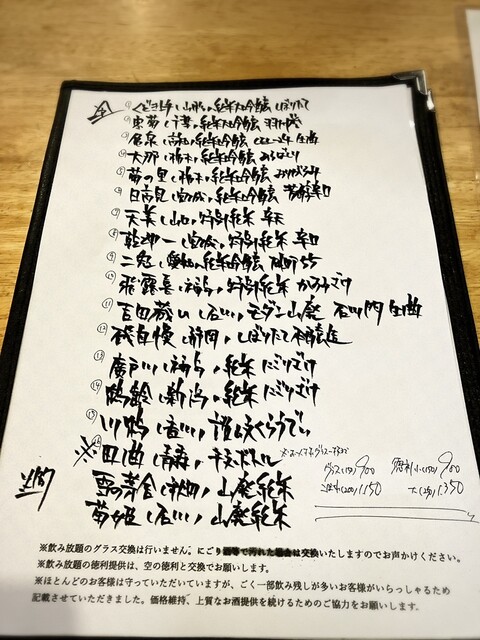 ① くどき上手(山形)純米大吟醸 しぼりたて
② 東薫(千葉)純米大吟醸
③ 純米吟醸 生酒
④ 大那(栃木)純米吟醸
⑤ 菊の里(栃木)純米吟醸
⑥ 日高見(宮城)純米吟醸 芳醇辛口
⑦ 天美(山口)特別純米
⑧ 乾坤一(宮城)特別純米 辛口
⑨ 二兎(愛知)純米吟醸 55
⑩ 飛露喜(福島)特別純米 かすみざけ
⑪ 吉田蔵u(石川)モダン山廃 石川門 生酒
⑫ 磯自慢(静岡)しぼりたて本醸造
⑬ 廣戸川(福島)純米にごりざけ
⑭ 鶴齢(新潟)純米にごりざけ
⑮ 川鶴(香川)讃岐くらうでぃ
※ 田酒(青森)
グラス 900
1,150
徳利 980
大 1,350
雪の茅舎(秋田)山廃純米
菊姫(石川)山廃純米
※飲み放題のグラス交換は行いません。にごり酒等で汚れた場合は交換いたしますのでお声かけください。
※飲み放題の徳利提供は、空の徳利と交換でお願いします。
※ほとんどのお客様は守っていただいていますが、ごく一部飲み残しが多いお客様がいらっしゃるため
記載させていただきました。価格維持、上質なお酒提供を続けるためのご協力をお願いします。